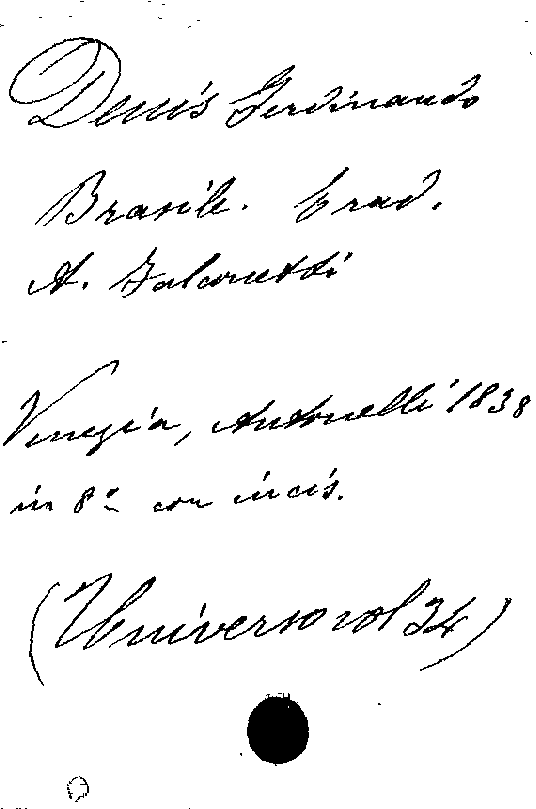 Denis Ferdinando
Brasile. Trad.
A. Falconetti
Venezia, Antonelli 1838
in 8º con incis.
(Universo vol 34)